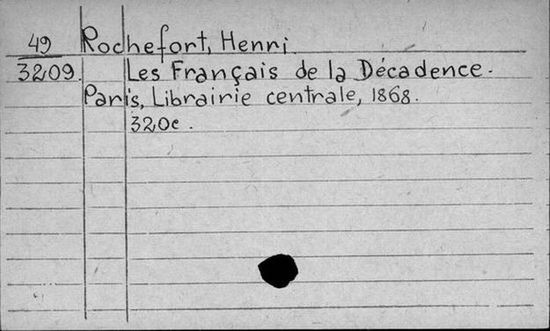 49 Rochefort, Henri
3209. Les Français de la Décadence.
Paris, Librairie centrale, 1868.
320c.